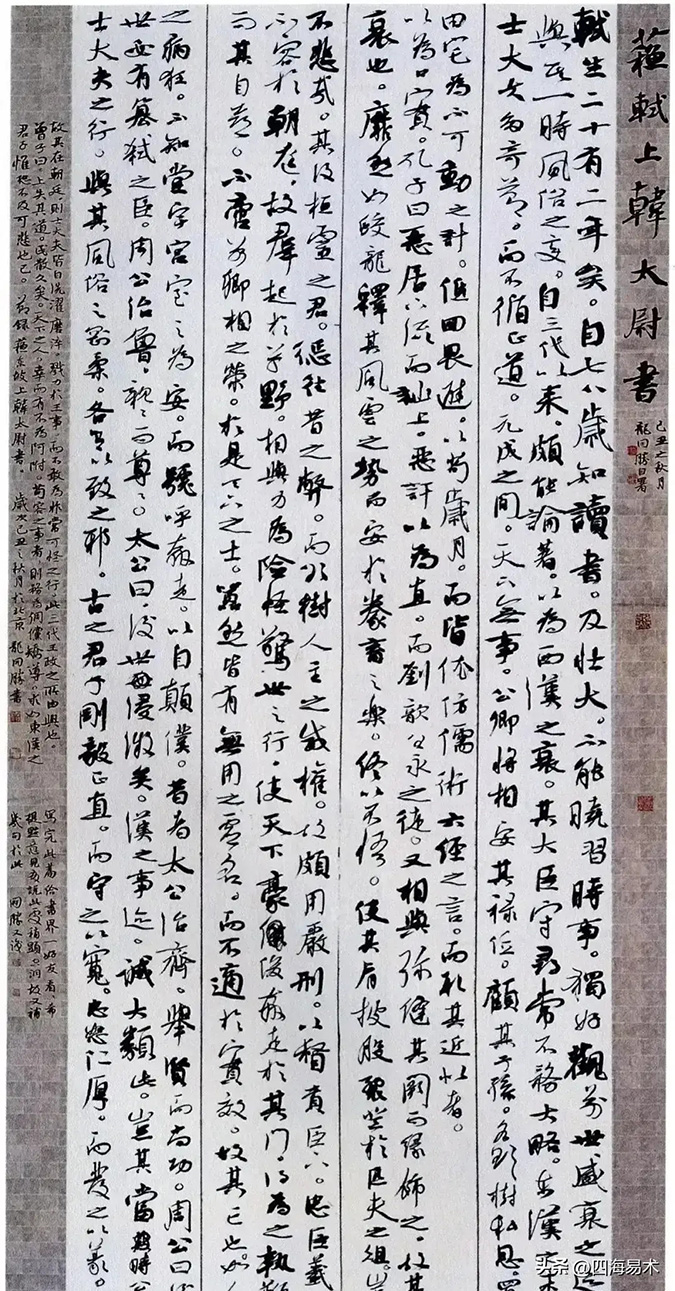 蘇軾上韓太尉書
己丑之秋月
龍開勝署
軾生二十有二年矣。自七八歲知讀書。及壯大。不能曉習時事。獨好觀前世盛衰之迹
與其一時風俗之变。自三代以来。頗能論著。以為西漢之衰。其大臣守尋常不務大略。東漢之末
士大夫多奇節。而不循正道。元成之間。天下無事。公卿將相安其祿位。顧其子孫。各欲樹私恩。買
田宅為不可動之計。低回畏避。以苟歲月。而皆依仿儒術六經之言。而取其近似者。
以為口實。孔子曰惡居下流而訕上。惡訐以為直。而劉歆谷永之徒。又相與弥縫其闕而緣飾之。故其
衰也。靡然如蛟龍釋其風雲之勢而安於豢畜之樂。終以不悟。使其肩披股裂登於匹夫之俎。豈
不悲哉。其後桓靈之君。懲往昔之弊。而欲樹人主之威權。故頗用嚴刑。以督責臣下。忠臣義
不容於朝廷。故羣起於草野。相與力為險怪驚世之行。使天下豪俊奔走於其門。得為之執鞭
而其自喜。不啻若卿相之榮。於是天下之士。囂然皆有無用之虛名。而不適於實效。故其亡也。如人
之病狂。不知堂宇宮室之為安。而號呼奔走。以自顛僕。昔者太公治齊。舉賢而尚功。周公曰後
世必有篡弑之臣。周公治魯。親親而尊尊。太公曰。後世寖微矣。漢之事迹。誠大類此。豈其當時公
士大夫之行。與其風俗之剛柔。各有以致之耶。古之君子剛毅正直。而守之以寬。忠恕仁厚。而發之以義。
故其在朝廷。則士大夫皆自洗濯磨淬。戮力於王事。而不敢為非常可怪之行。此三代王政之所由興也。
曾子曰。上失其道。民散久矣。天下之人。幸而有不為阿附。苟容之事者。則務為倜儻矯導。求如東漢之
君子。惟恐不及可悲也已。前錄蘇東坡上韓太尉書。歲次己丑之秋月於北京龍開勝書
寫完此篇給書界一好友看。希
提點意見
幾句於此 開勝又識
头条 @四海易术